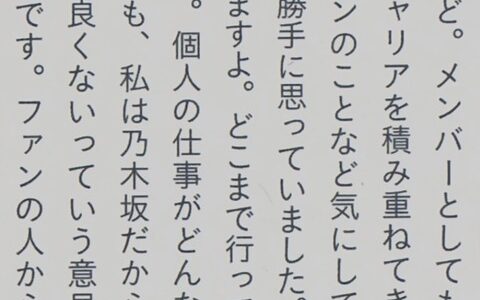 ど。メンバーとしても
ャリアを積み重ねてき
ンのことなど気にして
勝手に思っていました。
ますよ。どこまで行っ
。個人の仕事がどんな
も、私は乃木坂だから
良くないっていう意見
です。ファンの人から